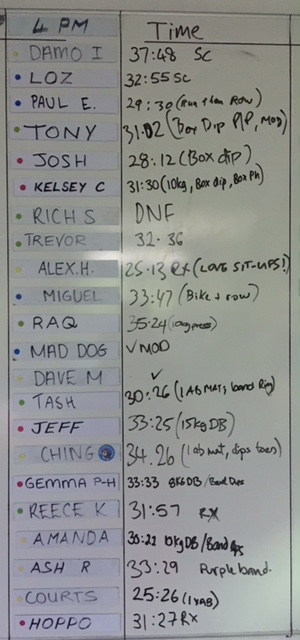 4 PM Time
DAMO I 37:48 SC
LOZ 32:55 SC
PAUL E. 29:30 (Run then Row)
TONY 31.02 (Box Dip P/P, MOD)
JOSH 28:12 (Box dip)
KELSEY C 31:30 (10kg, Box dip, Box PH)
RICH S DNF
TREVOR 32.36
ALEX.H. 25.13 RX (LOVE SIT-UPS!)
MIGUEL 33:47 (Bike + row)
RAQ 35.24
MAD DOG ✓ MOD
DAVE M ✓
TASH 30:26 (1 AB MAT, band Ring)
JEFF 33:25 (15kg DB)
CHING 34.26 (1 ab mat, dips toes)
GEMMA P-H 33:33 8KG DB / Band Dips
REECE K 31:57 RX
AMANDA 30:22 10kg DB / Band dips
ASH R 33:29 Purple band.
COURTS 25:26
HOPPO 31:27 RX